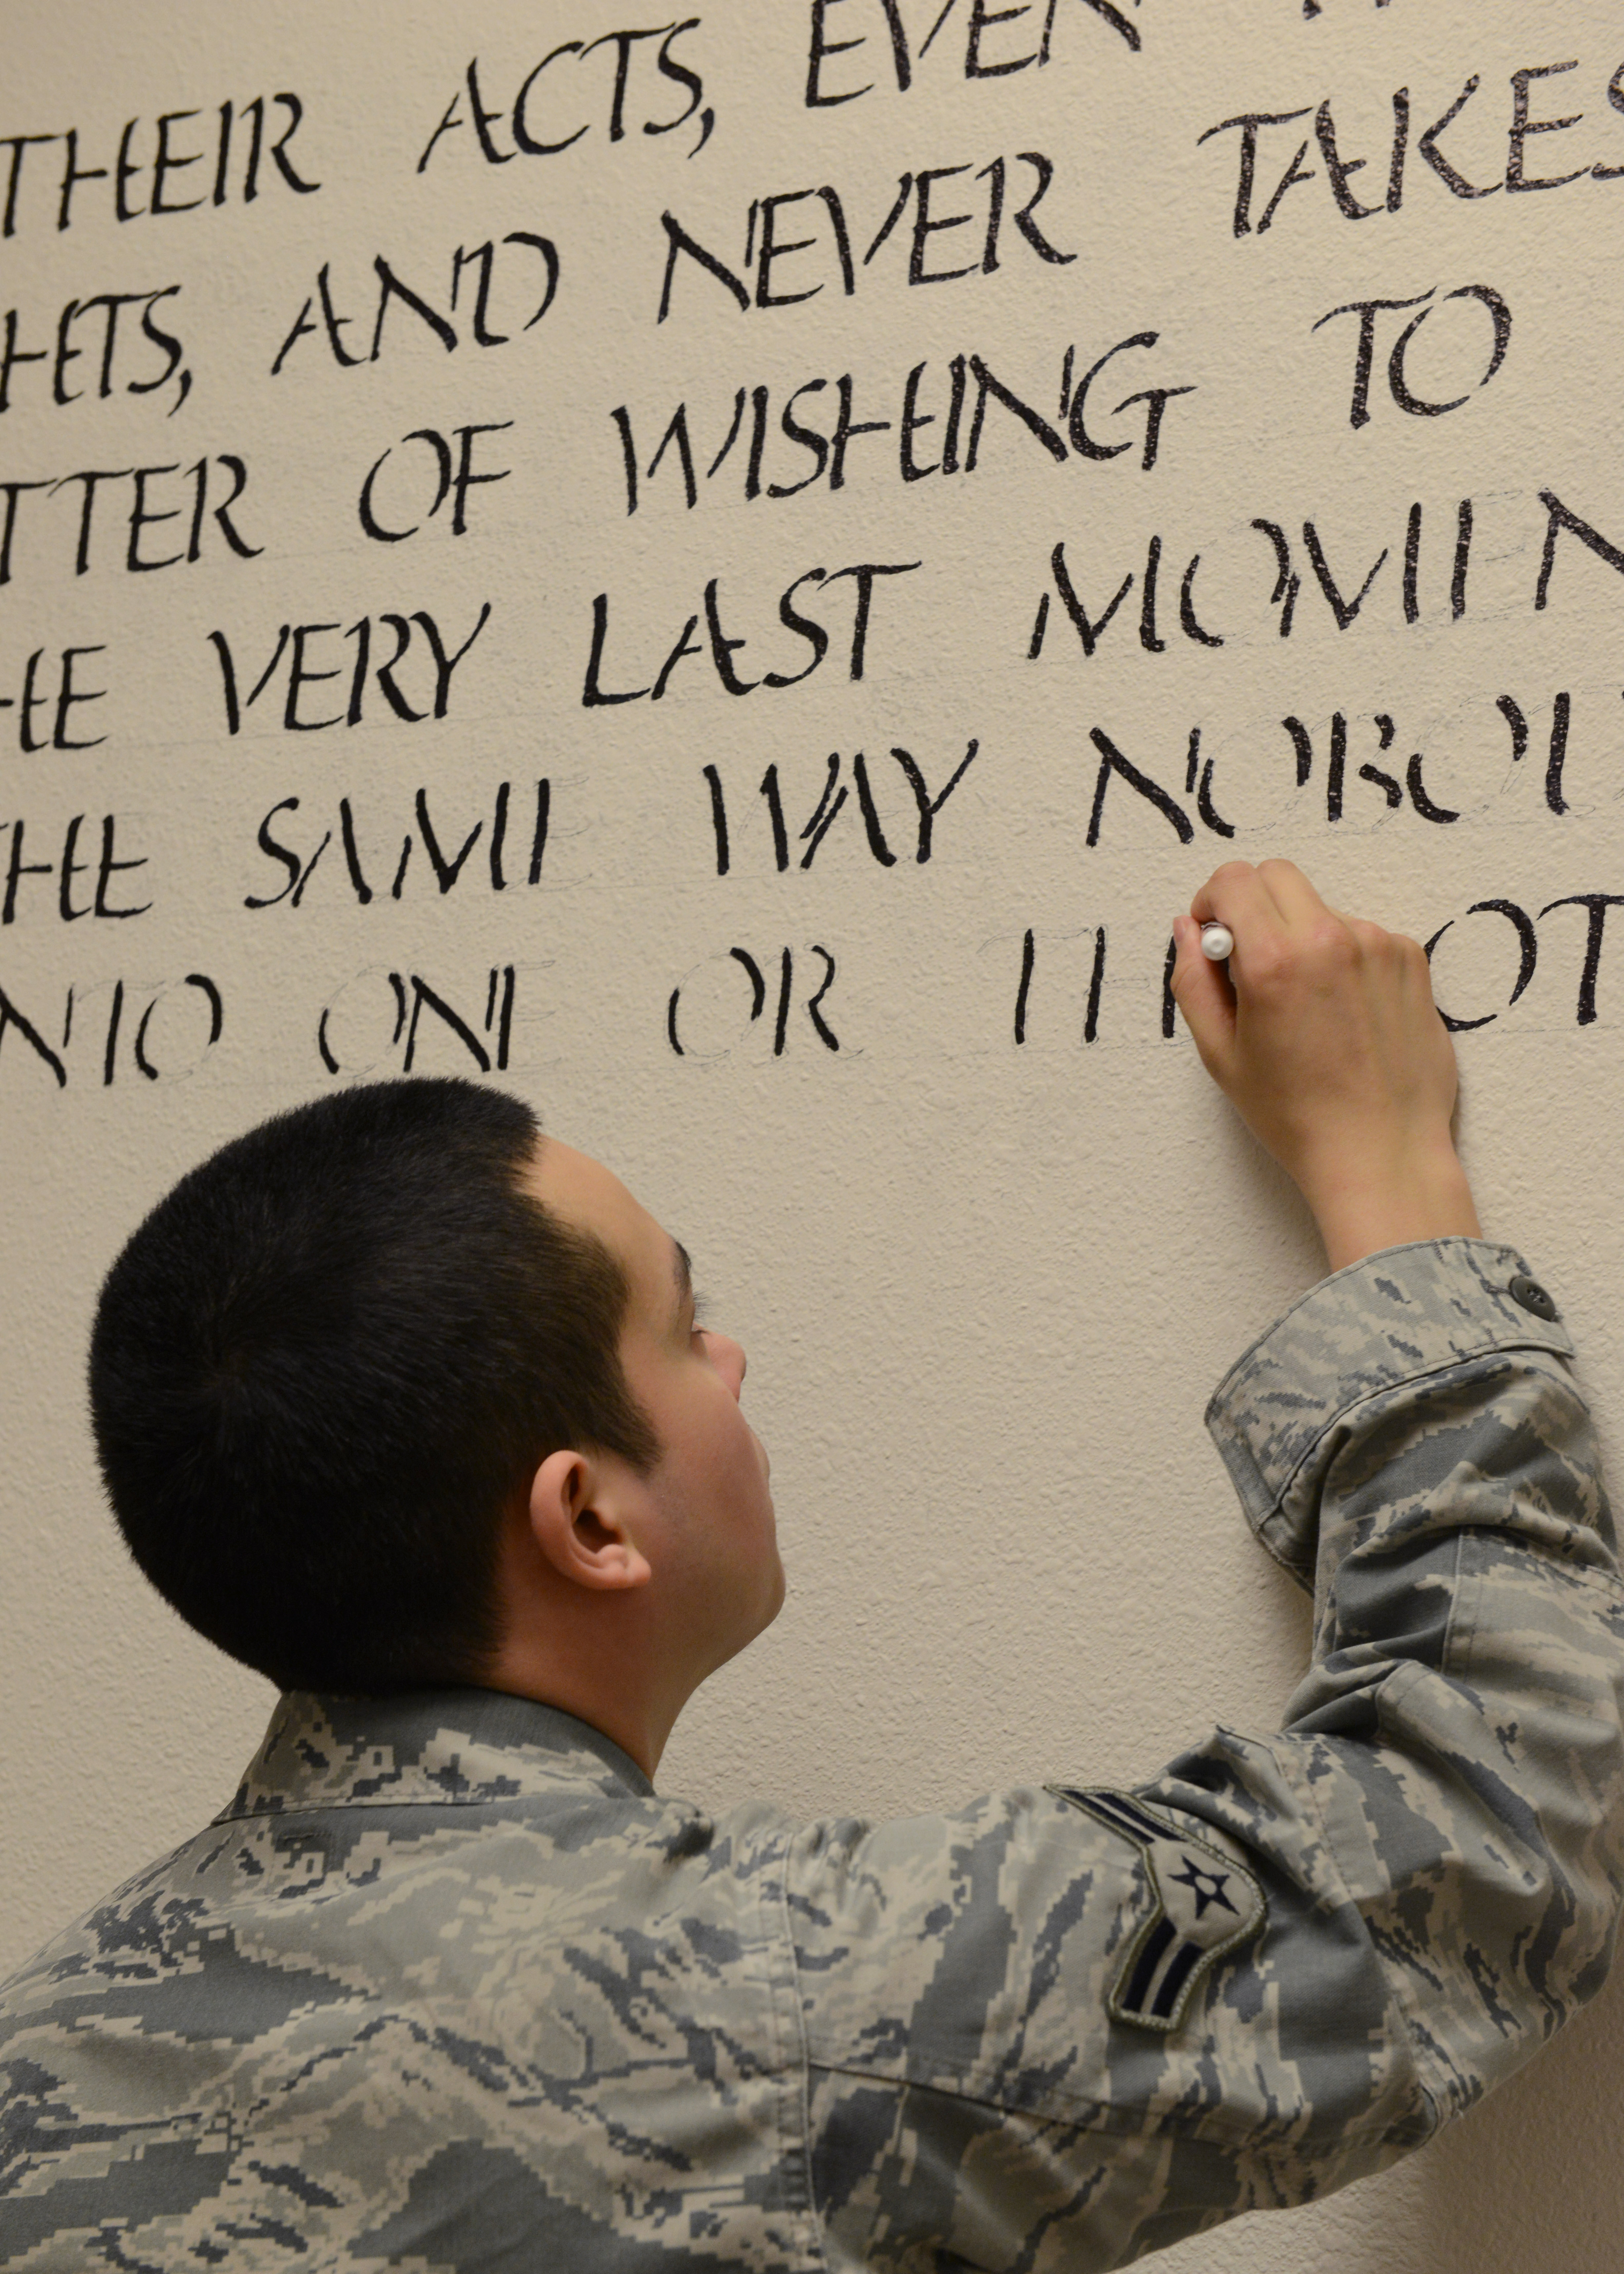 THEIR ACTS, EVEN
HTS, AND NEVER TAKES
TTER OF WISHING TO
HE VERY LAST MOMEN
THE SAME WAY NOBOD
NTO ONE OR TH OT